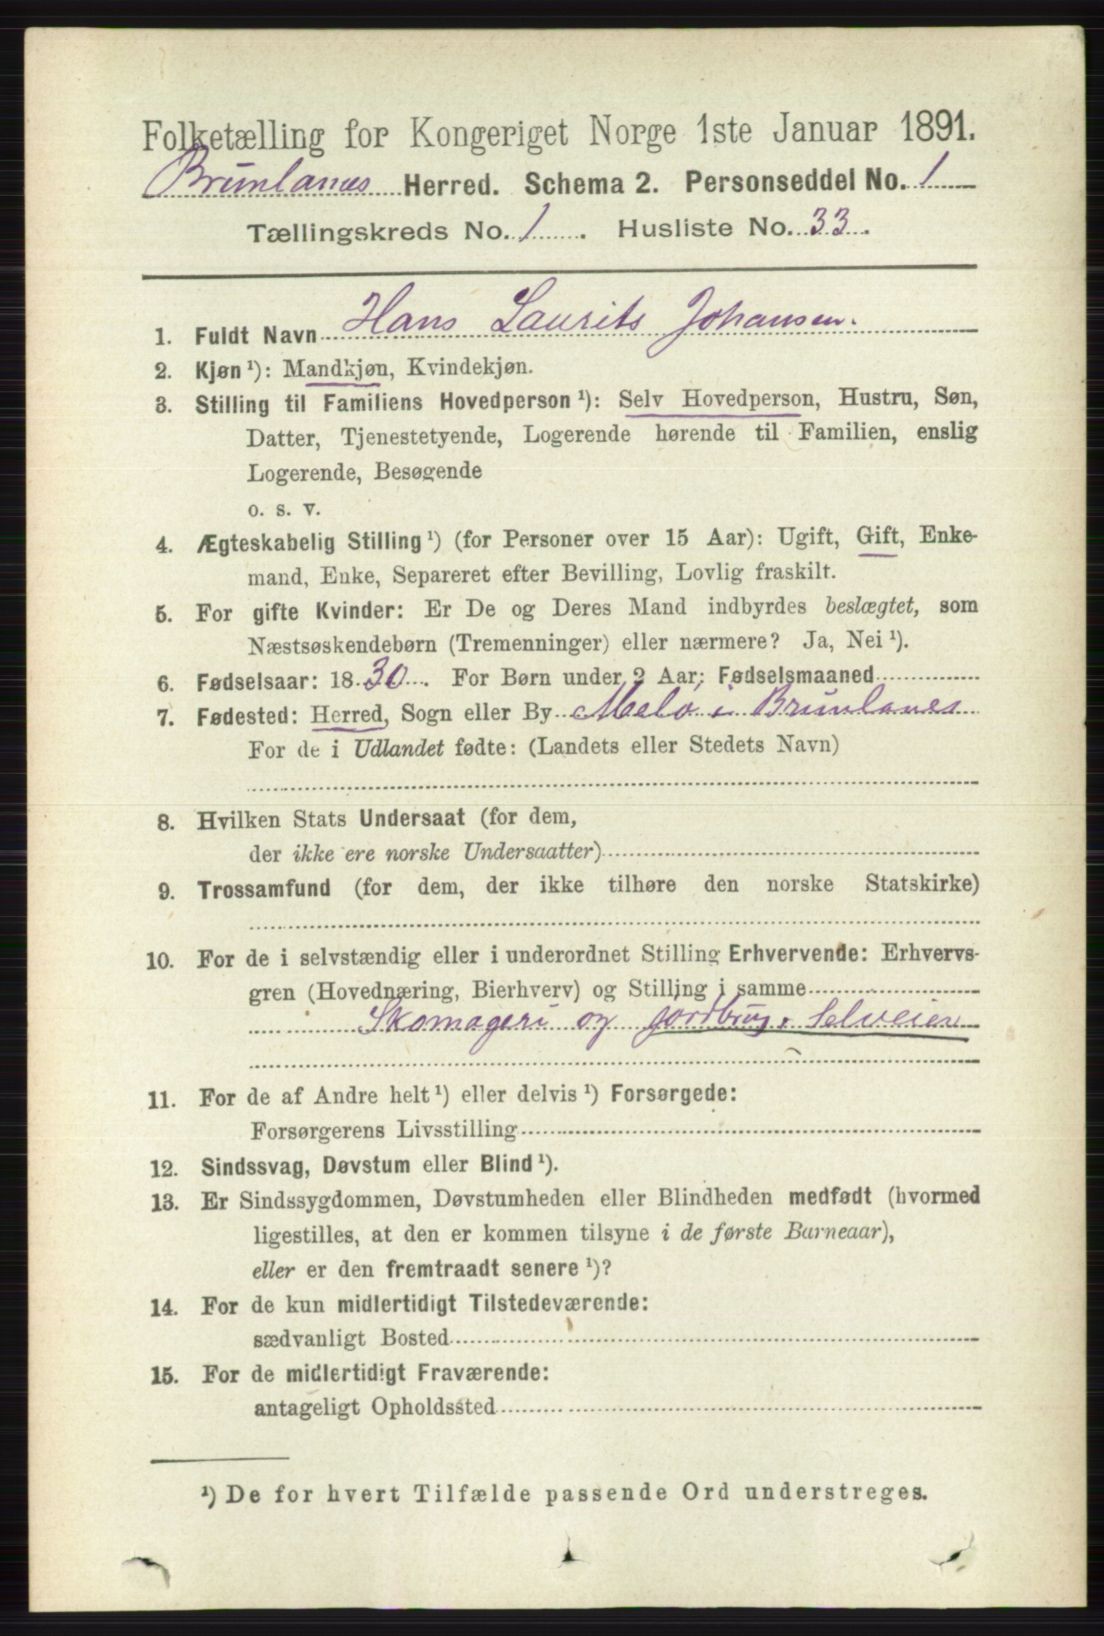 Folketælling for Kongeriget Norge 1ste Januar 1891.
Brunlanes Herred. Schema 2. Personseddel No. 1
Tællingskreds No. 1. Husliste No. 33.
1. Fuldt Navn Hans Laurits Johansen.
2. Kjøn ¹): Mandkjøn, Kvindekjøn.
3. Stilling til Familiens Hovedperson ¹): Selv Hovedperson, Hustru, Søn,
Datter, Tjenestetyende, Logerende hørende til Familien, enslig
Logerende, Besøgende
o. s. v.
4. Ægteskabelig Stilling ¹) (for Personer over 15 Aar): Ugift, Gift, Enke-
mand, Enke, Separeret efter Bevilling, Lovlig fraskilt.
5. For gifte Kvinder: Er De og Deres Mand indbyrdes beslægtet, som
Næstsøskendebørn (Tremenninger) eller nærmere? Ja, Nei ¹).
6. Fødselsaar: 1830. For Børn under 2 Aar: Fødselsmaaned
7. Fødested: Herred, Sogn eller By Melø i Brunlanes
For de i Udlandet fødte: (Landets eller Stedets Navn)
8. Hvilken Stats Undersaat (for dem,
der ikke ere norske Undersaatter)
9. Trossamfund (for dem, der ikke tilhøre den norske Statskirke)
10. For de i selvstændig eller i underordnet Stilling Erhvervende: Erhvervs-
gren (Hovednæring, Bierhverv) og Stilling i samme
Skomageri og jordbrug. Selveier
11. For de af Andre helt ¹) eller delvis ¹) Forsørgede:
Forsørgerens Livsstilling
12. Sindssvag, Døvstum eller Blind ¹).
13. Er Sindssygdommen, Døvstumheden eller Blindheden medfødt (hvormed
ligestilles, at den er kommen tilsyne i de første Barneaar),
eller er den fremtraadt senere ¹)?
14. For de kun midlertidigt Tilstedeværende:
sædvanligt Bosted
15. For de midlertidigt Fraværende:
antageligt Opholdssted
¹) De for hvert Tilfælde passende Ord understreges.